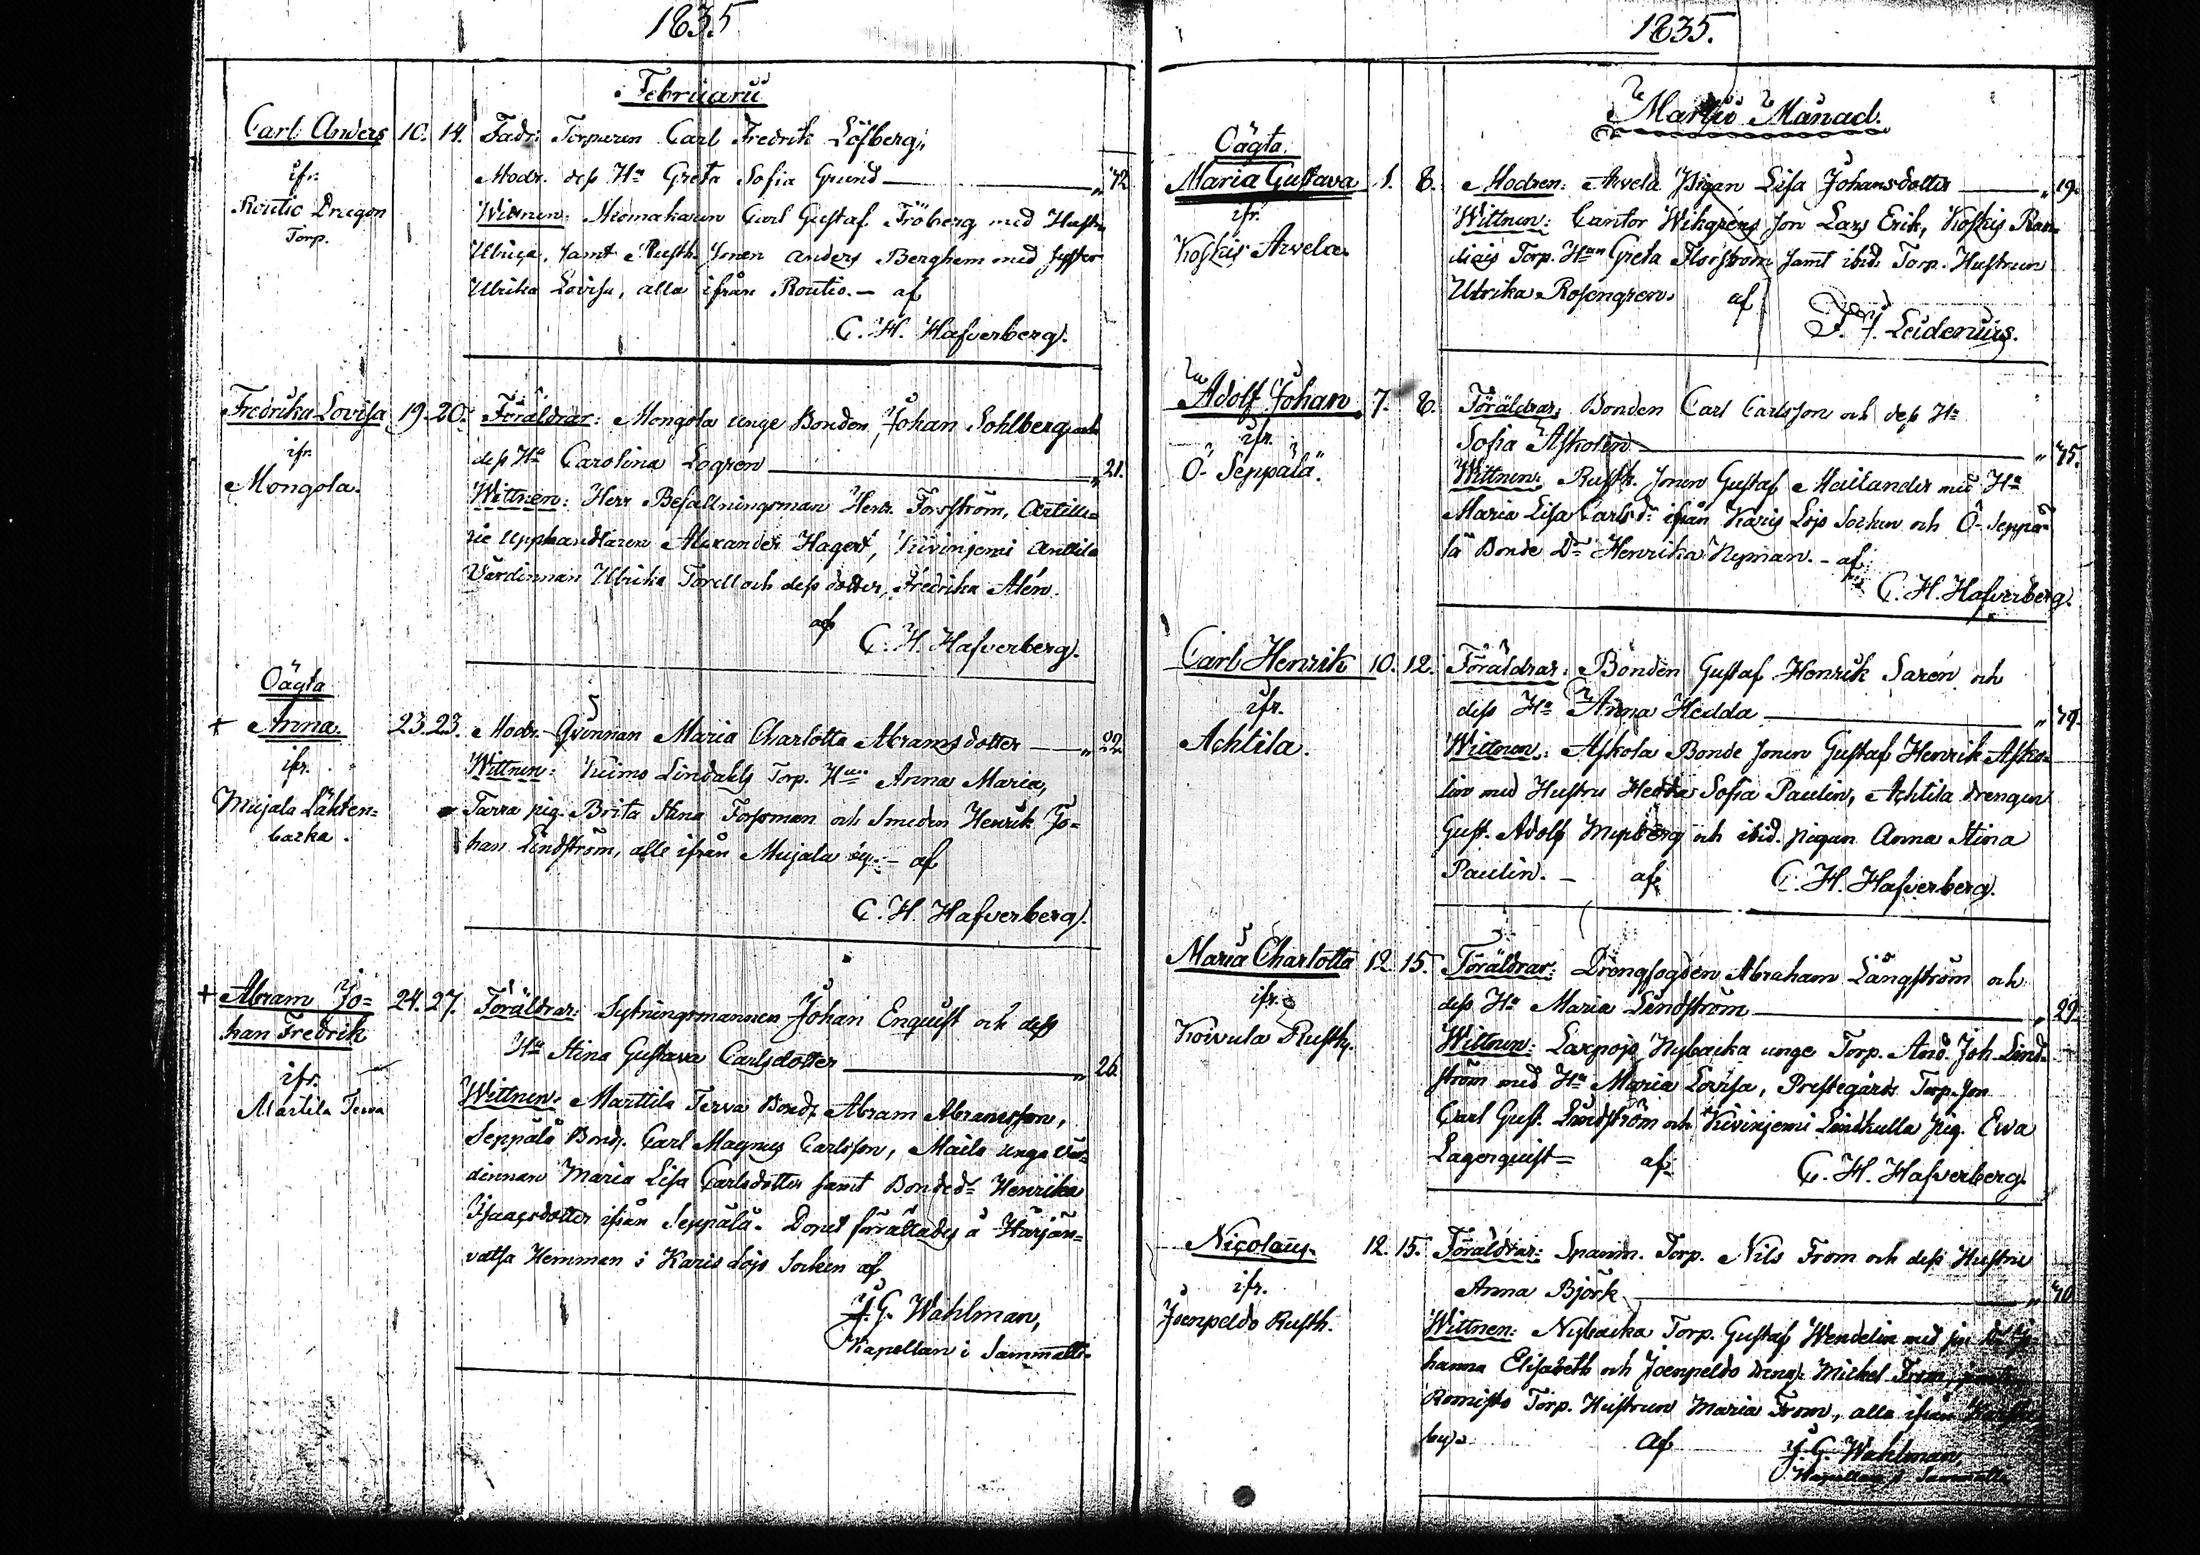 1835.
Februarii
Carl Anders 10. 14. Fadr: Torparen Carl Fredrik Löfberg,
ifr. Modr. dess Hu Greta Sofia Grund — „ 42
Routio Dragon Wittnen: Åkomakaren Carl Gustaf Fröberg med Hustru
Torp. Ulrica, samt Rusth. sonen Anders Berghem med syster
Ulrika Lovisa, alla ifrån Routio. — af
C. H. Hafverberg.
Fredrika Lovisa 19. 20. Föräldrar: Mongola unge Bonden Johan Sohlberg och
ifr. dess Hu Carolina Logrén — „ 21.
Mongola. Wittnen: Herr Befallningsman Henr. Forsström, Artille=
rie upphandlaren Alexander Hagert, Kivinjemi Anttila
Värdinnan Ulrika Torell och dess dotter, Fredrika Alén.
af C. H. Hafverberg.
Oägta
+ Anna. 23. 23. Modr. Qvinnan Maria Charlotta Abramsdotter — „ 22.
ifr. Wittnen: Heimo Lindahls Torp. Hun Anna Maria,
Mujala Lähten= Tarra pig. Brita Stina Forsman och Smeden Henrik Jo=
backa. han Lindström, alle ifrån Mujala by. — af
C. H. Hafverberg.
+ Abram Jo= 24. 27. Föräldrar: Sytningsmannen Johan Enquist och dess
han Fredrik Hu Stina Gustava Carlsdotter — „ 26
ifr. Wittnen: Marttila Terva Bond. Abram Abramsson,
Martila Terva Seppälä Bond. Carl Magnus Carlsson, Maila unga Vär=
dinnan Maria Lisa Carlsdotter samt Bonded. Henrika
Isaacsdotter ifrån Seppälä. Dopet förrättades å Härjän=
vatsa Hemman i Karis Lojo Socken af
J. G. Wahlman,
Kapellan i Sammatti.
1835.
Martii Månad.
Oägta.
Maria Gustava 1. 8. Modren: Arvela Pigan Lisa Johansdotter — „ 19.
ifr. Wittnen: Cantor Wikgréns son Lars Erik, Koskis Ran=
Koskis Arvela. Torp. Hun Greta Florström samt ibid. Torp. Hustrun
Ulrika Rosengren. af
F. J. Leidenius.
Adolf Johan 7. 8. Föräldrar: Bonden Carl Carlsson och dess Hu
ifr. Sofia Askolin — „ 45.
Ö. Seppälä. Wittnen: Rusth. sonen Gustaf Meilander med Hu
Maria Lisa Carlsdr ifrån Karis Lojo Socken och Ö. Seppä=
lä Bonde Dr Henrika Nyman. — af
C. H. Hafverberg.
Carl Henrik 10. 12. Föräldrar: Bonden Gustaf Henrik Sarén och
ifr. dess Hu Anna Hedda — „
Achtila. Wittnen: Askola Bonde sonen Gustaf Henrik Asko=
lin med Hustru Hedda Sofia Paulin, Achtila drengen
Gust. Adolf Myrberg och ibid. pigan Anna Stina
Paulin. — af C. H. Hafverberg.
Maria Charlotta 12. 15. Föräldrar: Drengfogden Abraham Långström och
ifr. dess Hu Maria Lindström — „ 29.
Koivula Rusth. Wittnen: Laxpojo Nybacka unge Torp. And. Joh. Lind=
ström med Hu Maria Lovisa, Prestegårds Torp. son
Carl Gust. Lindström och Kivinjemi Lindkulla pig. Ewa
Lagerquist = af C. H. Hafverberg.
Nicolaus. 12. 15. Föräldrar: Spanm. Torp. Nils From och dess Hustru
ifr. Anna Björk — „ 40
Joenpeldo Rusth. Wittnen: Nybacka Torp. Gustaf Wendelin med sin Jo=
hanna Elisabeth och Joenpeldo dreng. Mickel From,
Romisto Torp. Hustrun Maria From, alla ifrån
by. af J. G. Wahlman,
Kapellan i Sammatti.